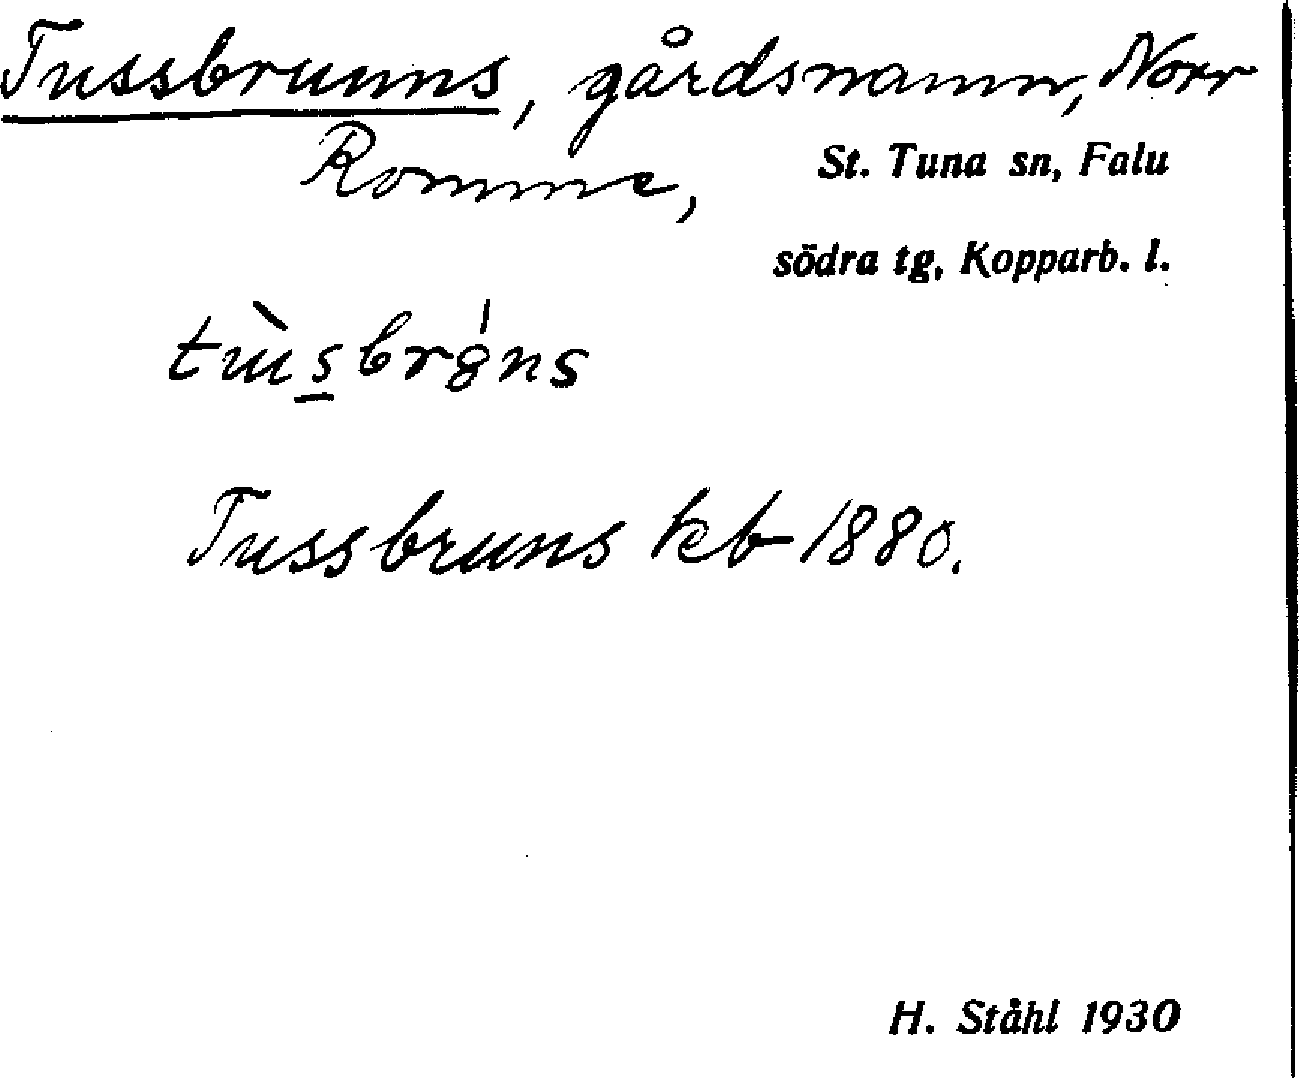 Tussbrunns, gårdsnamn, Norr
Romme, St. Tuna sn, Falu
södra tg, Kopparb. l.
Tussbruns kb 1880.
H. Ståhl 1930